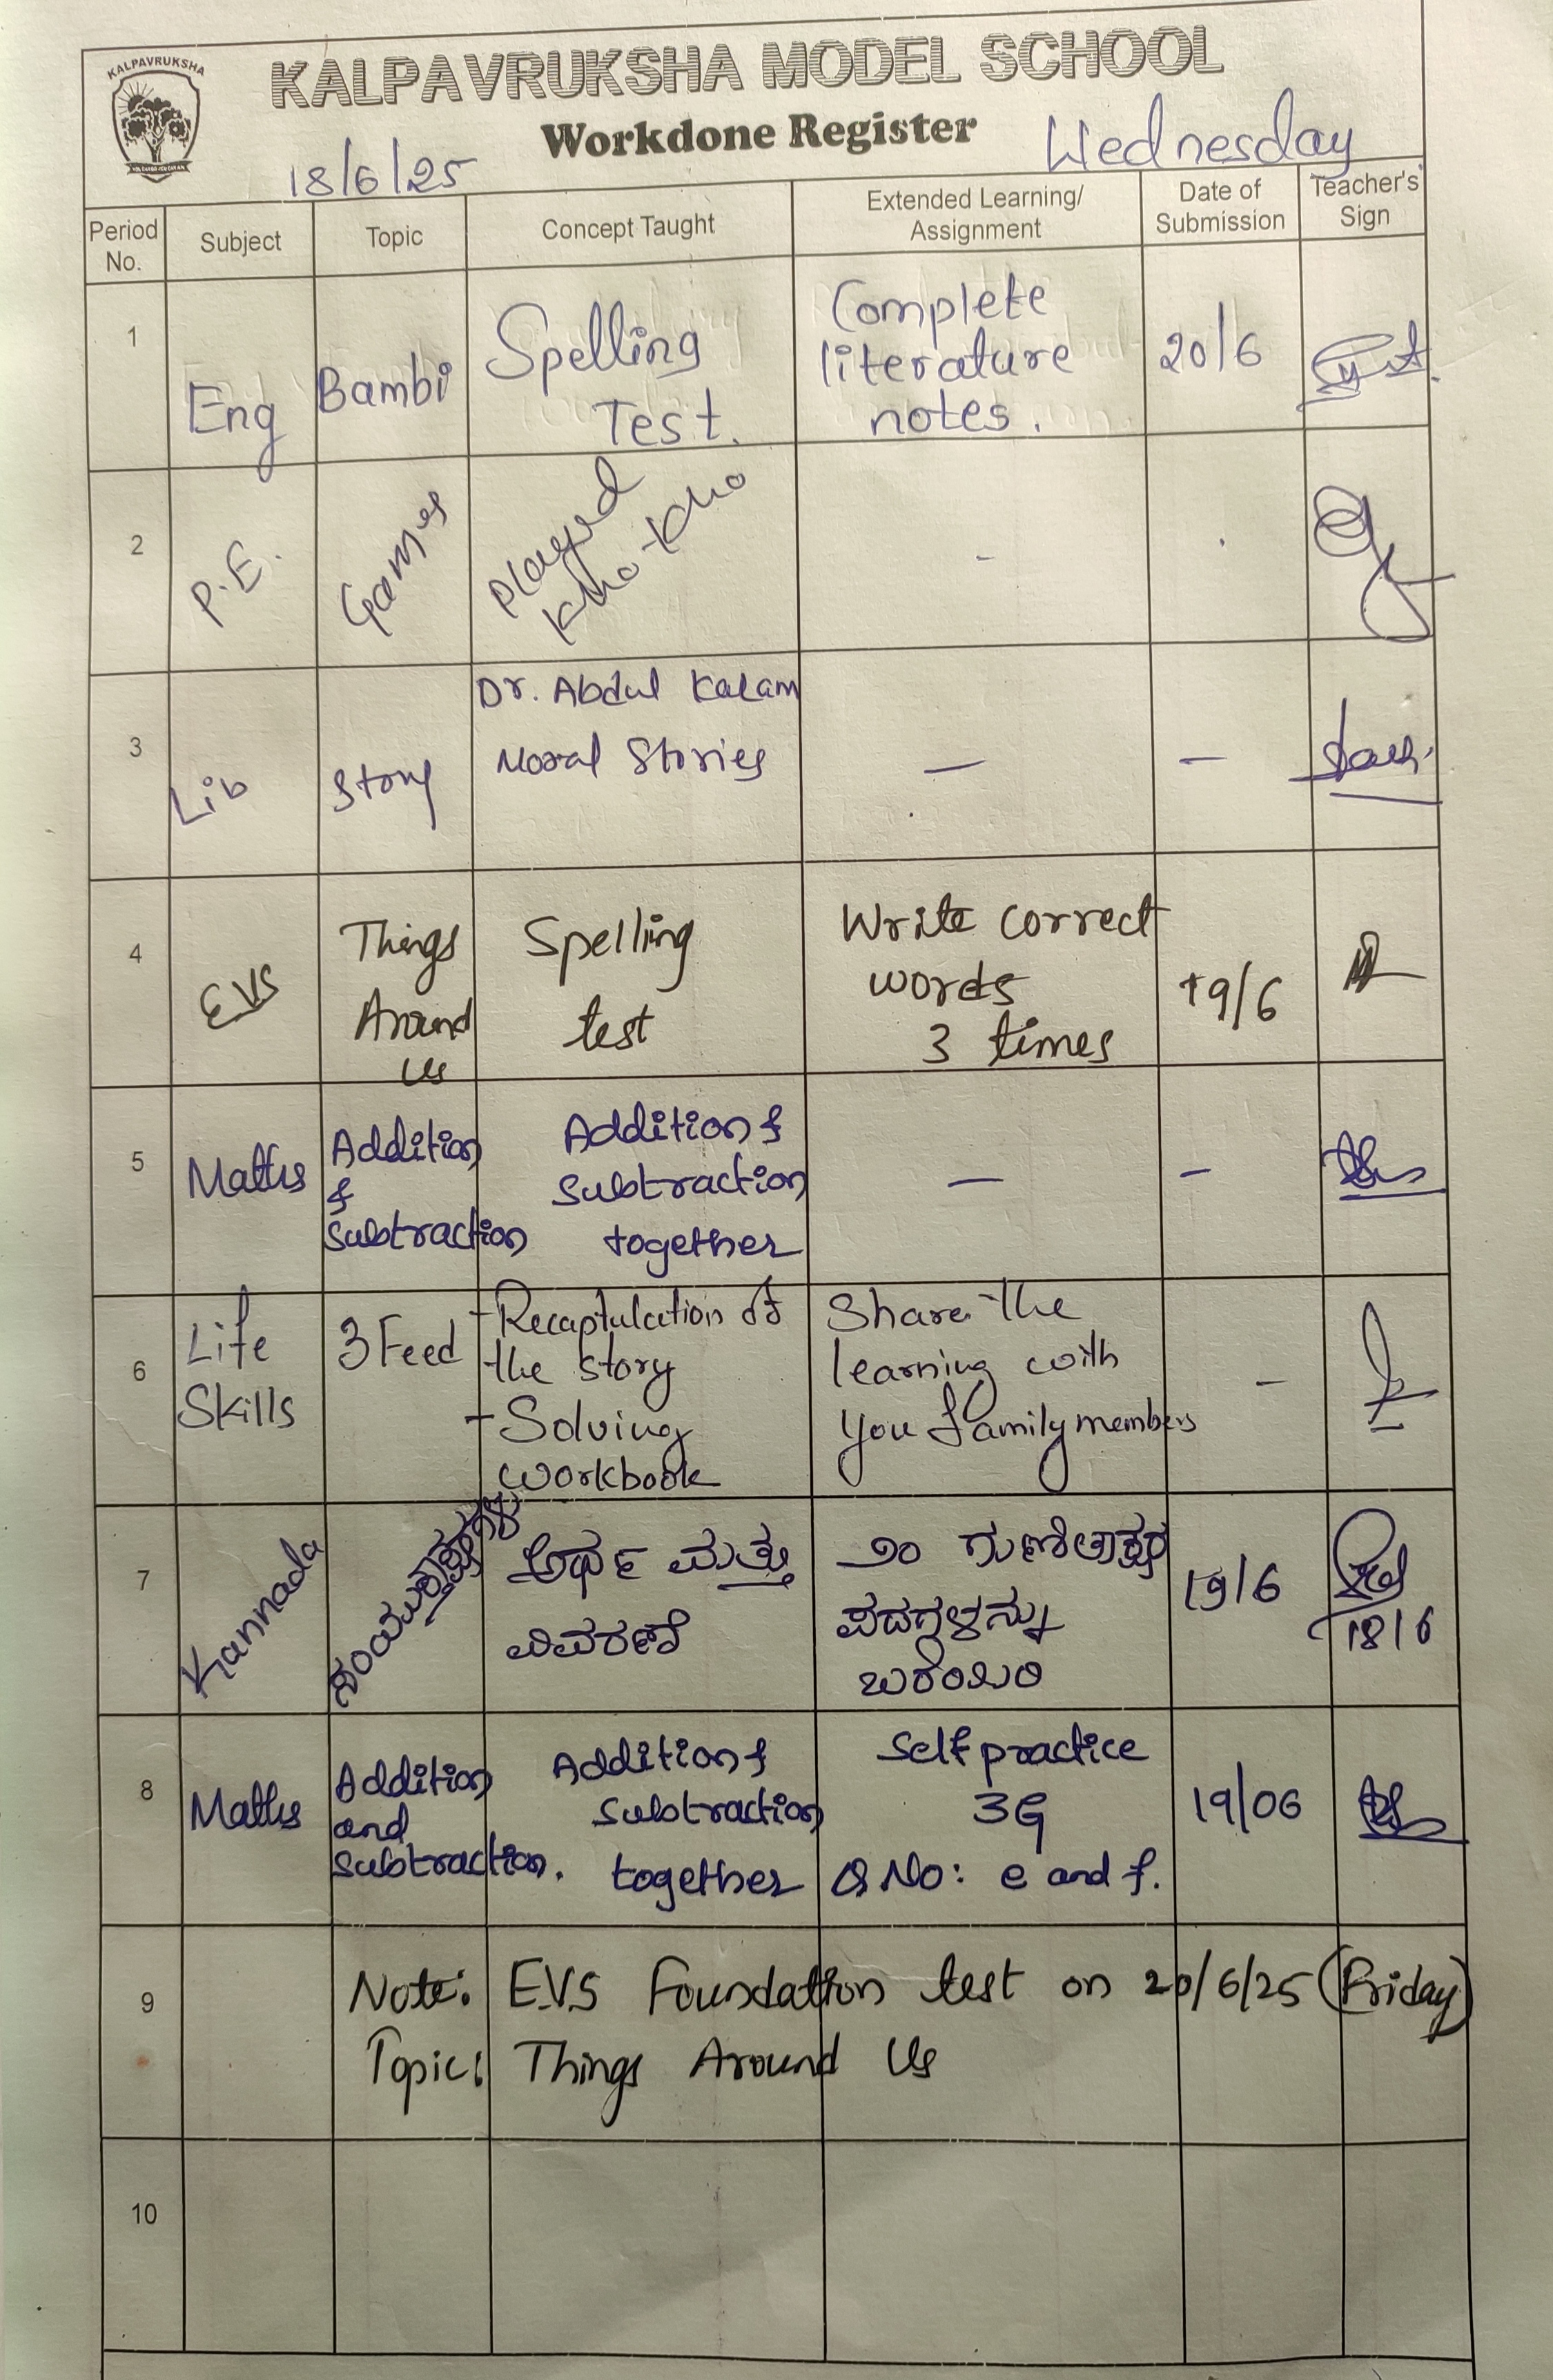 KALPAVRUKSHA
KALPAVRUKSHA MODEL SCHOOL
Workdone Register
18/6/25
Wednesday
Period No.
Subject
Topic
Concept Taught
Extended Learning/
Assignment
Date of
Submission
Teacher's
Sign
1
Eng
Bambi
Spelling
Test.
Complete
literature
notes.
20/6
2
P.E.
Games
Played
Kho-Kho
-
3
Lib
Story
Dr. Abdul Kalam
Moral Stories
-
-
4
EVS
Things
Around
Us
Spelling
test
Write correct
words
3 times
19/6
5
Maths
Addition
&
Subtraction
Addition &
Subtraction
together
-
-
6
Life
Skills
3 Feed
- Recaptulation of
the story
- Solving
workbook
Share the
learning with
you family members
-
7
Kannada
ಅರ್ಥ ಮತ್ತು
ವಿವರಣೆ
೨೦ ಗುಣಿತಾಕ್ಷರ
ಪದಗಳನ್ನು
ಬರೆಯಿರಿ
19/6
18/6
8
Maths
Addition
and
Subtraction.
Addition &
Subtraction
together
Self practice
3G
Q No: e and f.
19/06
9
Note: EVS Foundation test on 20/6/25 (Friday)
Topic: Things Around Us
10